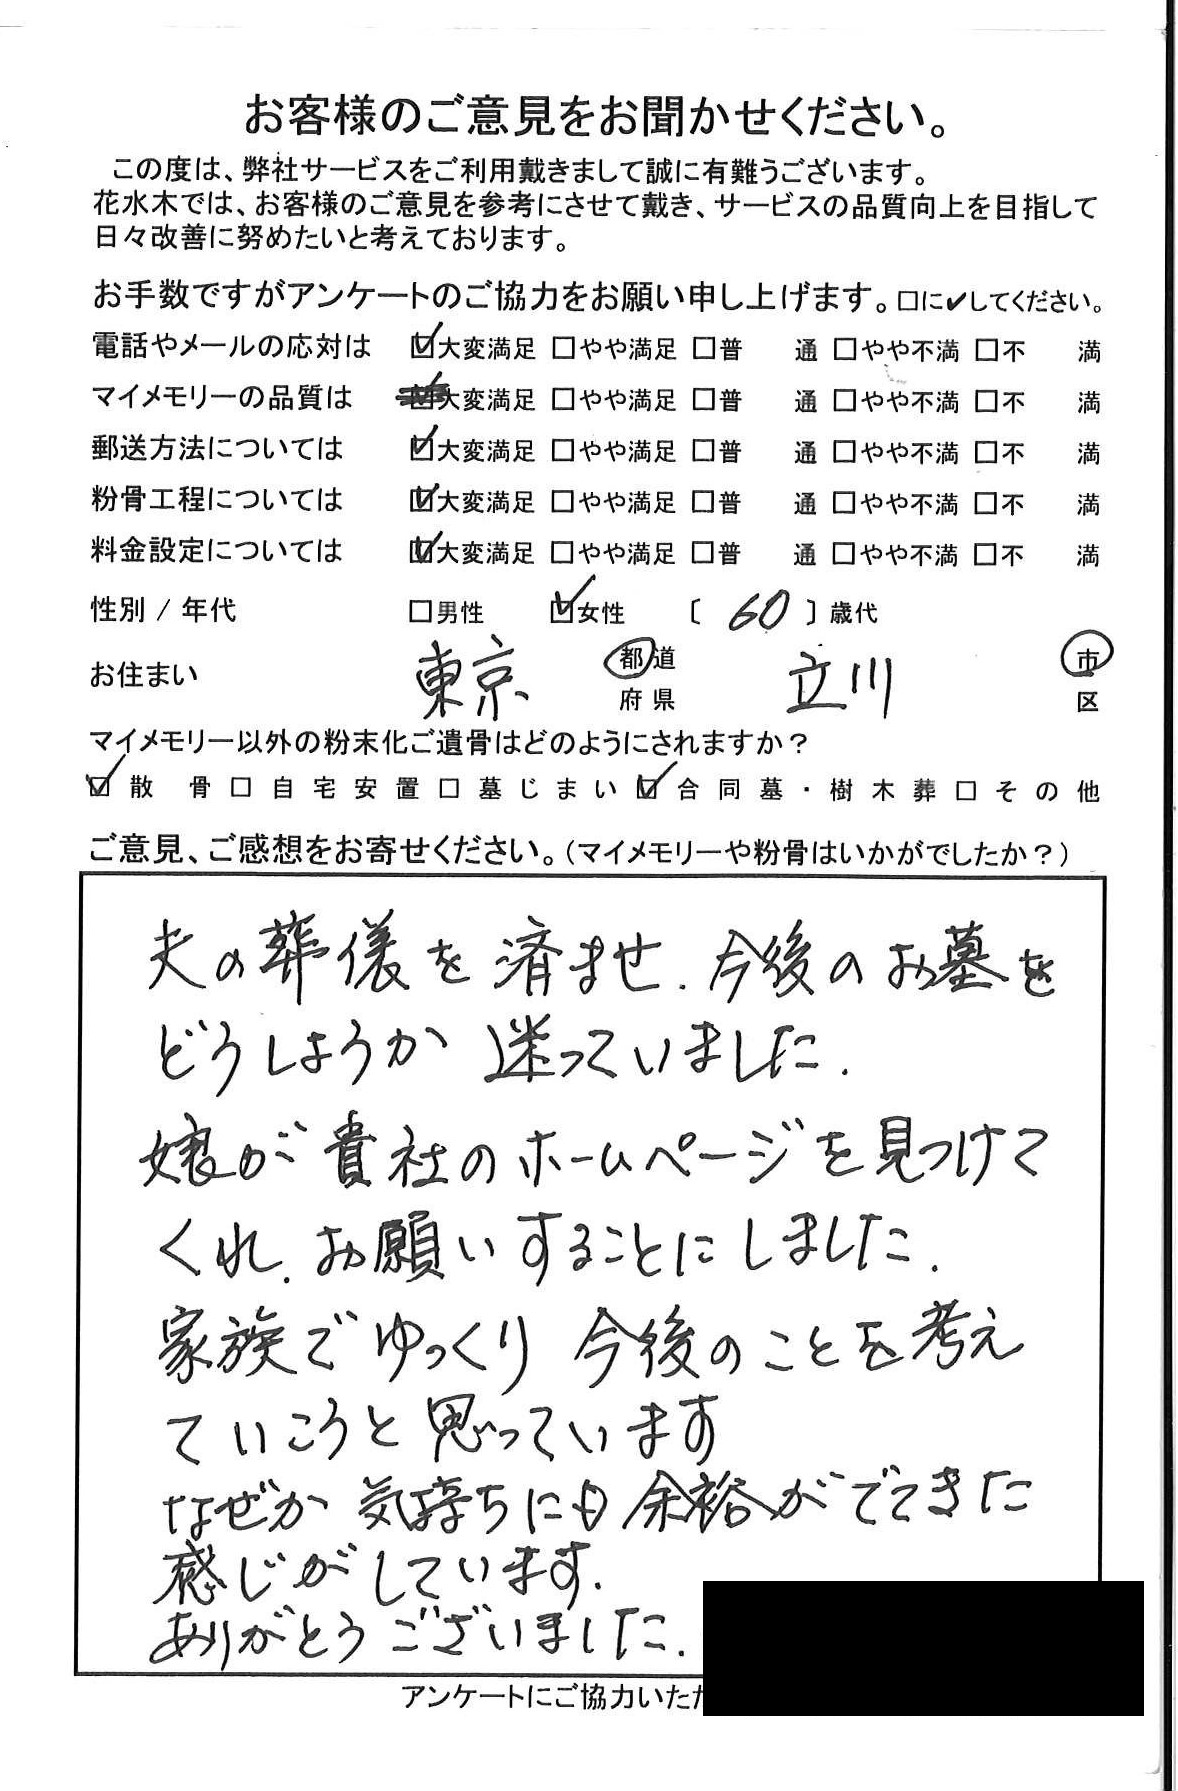 お客様のご意見をお聞かせください。
この度は、弊社サービスをご利用戴きまして誠に有難うございます。
花水木では、お客様のご意見を参考にさせて戴き、サービスの品質向上を目指して
日々改善に努めたいと考えております。
お手数ですがアンケートのご協力をお願い申し上げます。□に✔してください。
電話やメールの応対は ☑大変満足 □やや満足 □普 通 □やや不満 □不 満
マイメモリーの品質は ☑大変満足 □やや満足 □普 通 □やや不満 □不 満
郵送方法については ☑大変満足 □やや満足 □普 通 □やや不満 □不 満
粉骨工程については ☑大変満足 □やや満足 □普 通 □やや不満 □不 満
料金設定については ☑大変満足 □やや満足 □普 通 □やや不満 □不 満
性別 / 年代 □男性 ☑女性 〔 60 〕歳代
お住まい 東京 都道府県 立川 市区
マイメモリー以外の粉末化ご遺骨はどのようにされますか？
☑散 骨 □自宅安置 □墓じまい ☑合同墓・樹木葬 □その他
ご意見、ご感想をお寄せください。（マイメモリーや粉骨はいかがでしたか？）
夫の葬儀を済ませ.今後のお墓を
どうしようか 迷っていました.
娘が貴社のホームページを見つけて
くれ.お願いすることにしました.
家族でゆっくり 今後のことを考え
ていこうと思っています
なぜか 気持ちにも余裕がでてきた
感じがしています.
ありがとうございました.
アンケートにご協力いただ